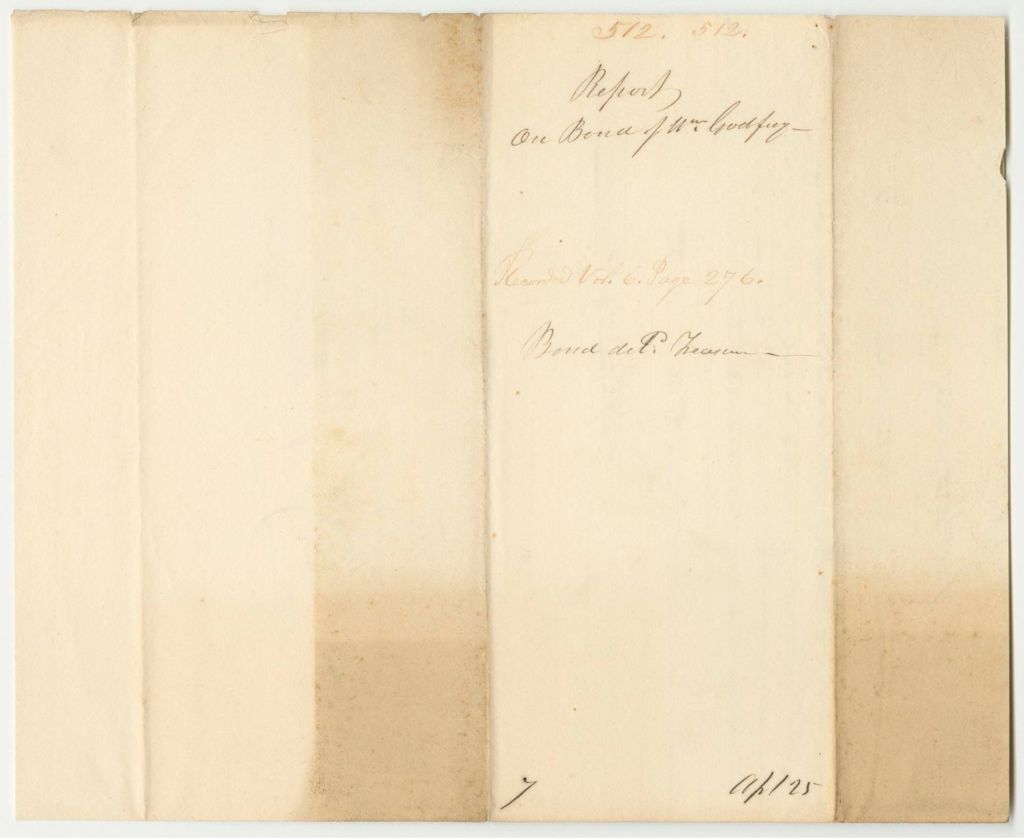 512. 512.
Report
On Bond of Wm. Godfrey
Recorded Vol. 6. Page 276.
Bond
7 Apl 25